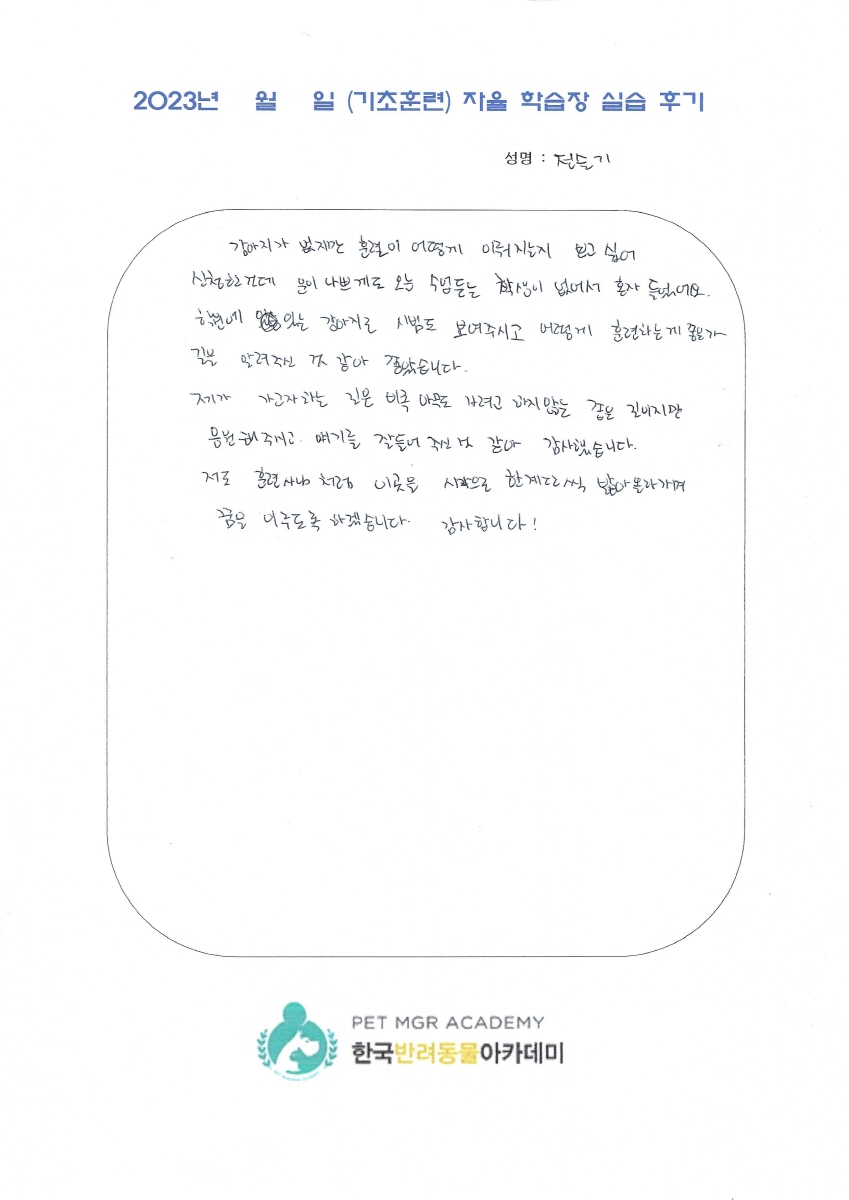 2023년 월 일 (기초훈련) 자율 학습장 실습 후기
성명 : 전슬기
강아지가 없지만 훈련이 어떻게 이뤄지는지 보고 싶어
신청한건데 운이 나쁘게도 오늘 수업듣는 학생이 없어서 혼자 들었어요.
학원에 있는 강아지로 시범도 보여주시고 어떻게 훈련하는게 좋은가
길을 알려주신 것 같아 좋았습니다.
제가 가고자하는 길은 비록 아무도 가려고 하지않는 좁은 길이지만
응원해주시고 얘기를 잘들어 주신 것 같아 감사했습니다.
저도 훈련사님처럼 이곳을 시작으로 한계단씩 밟아올라가며
꿈을 이루도록 하겠습니다. 감사합니다!
PET MGR ACADEMY
한국반려동물아카데미